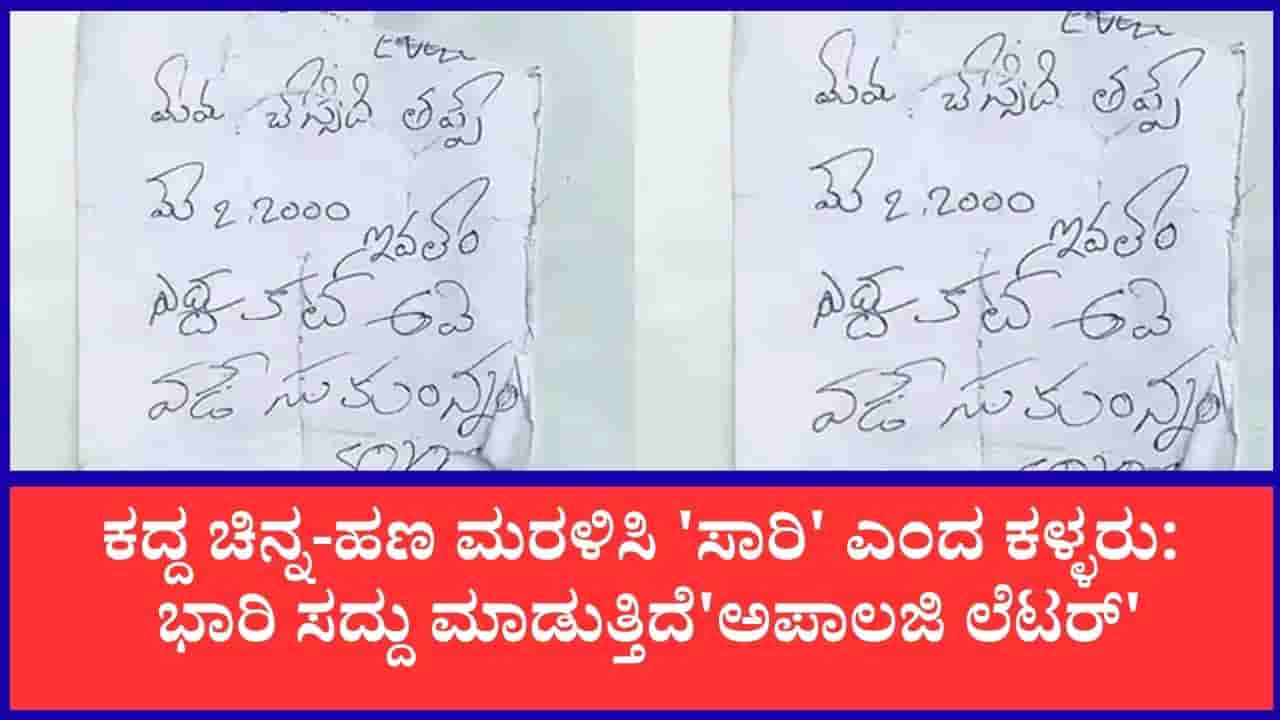 మేమ చేస్సిది తప్పే
మే 2.2000
ఇవతం
వడే సుకుంన్నం
మేమ చేస్సిది తప్పే
మే 2.2000
ఇవతం
వడే సుకుంన్నం
ಕದ್ದ ಚಿನ್ನ-ಹಣ ಮರಳಿಸಿ 'ಸಾರಿ' ಎಂದ ಕಳ್ಳರು:
ಭಾರಿ ಸದ್ದು ಮಾಡುತ್ತಿದೆ'ಅಪಾಲಜಿ ಲೆಟರ್'